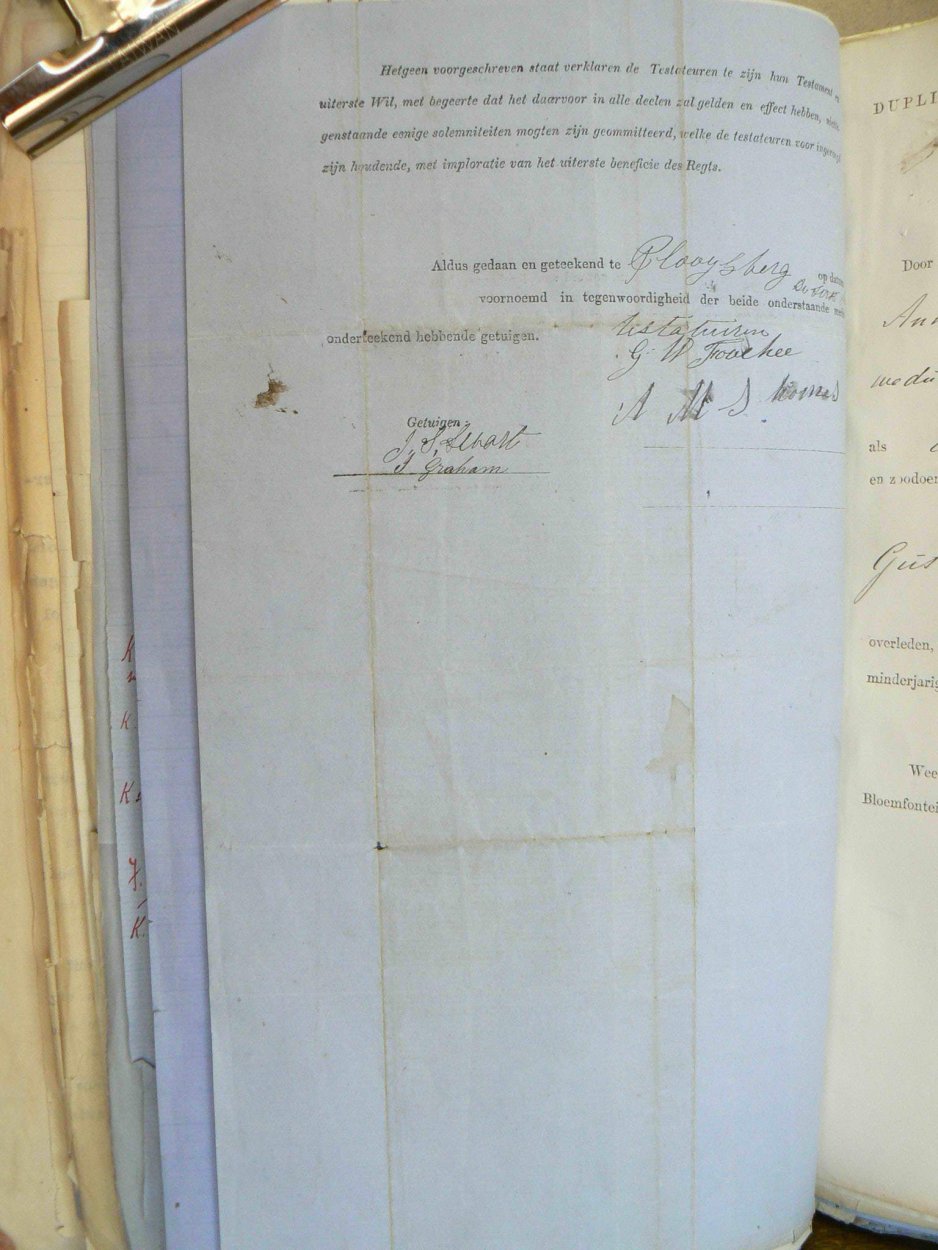 Hetgeen voorgeschreven staat verklaren de Testateuren te zijn hun Testament en
uiterste Wil, met begeerte dat het daarvoor in alle deelen zal gelden en effect hebben,
genstaande eenige solemniteiten mogten zijn geommitteerd, welke de testateuren voor
zijn houdende, met imploratie van het uiterste beneficie des Regts.
Aldus gedaan en geteekend te Plooysberg op datum
voornoemd in tegenwoordigheid der beide onderstaande
onderteekend hebbende getuigen.
testatuiren
G W Fouchee
A M S
Getuigen
J. S. Swart
J Graham
DUPLI
Door
wedu
als
en zoodoen
Gus
overleden,
minderjarig
Wee
Bloemfontei
K
K
K